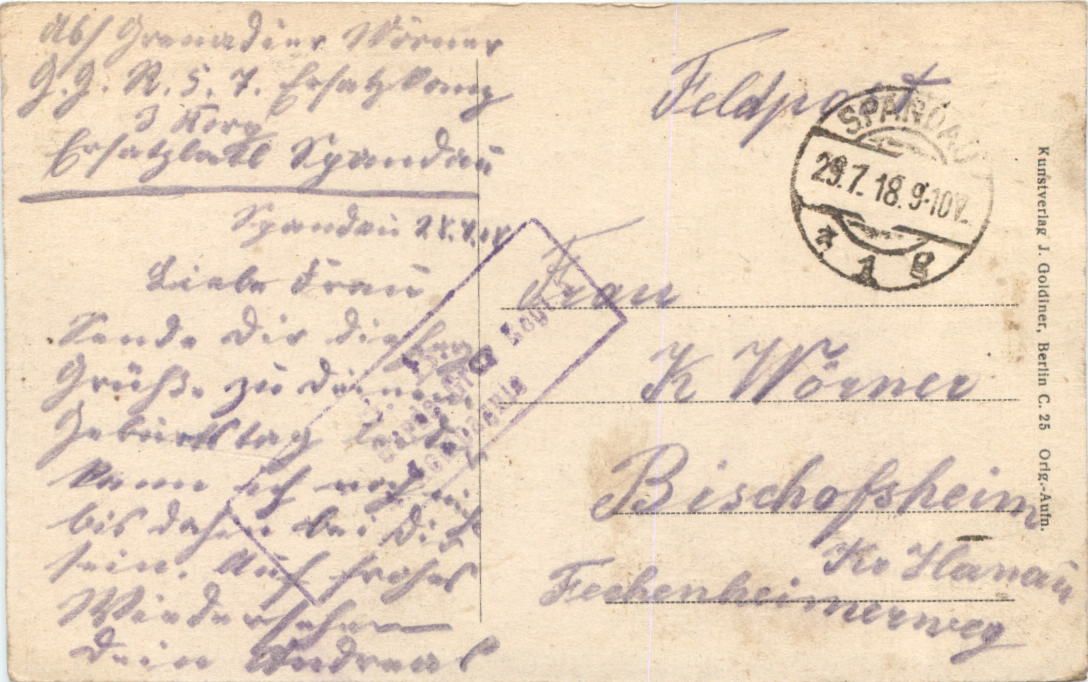 Abs Grenadier Wörner
G. G. R. 5. 7. Ersatzkomp
3 Korp
Ersatzbatl Spandau
Spandau 28.7.18
Liebe Frau
Sende dir die herz
Grüße zu deinem
Geburtstag leider
kann ich noch nicht
bis dahin bei dir
sein. Auf frohes
Wiedersehen
dein Andreas
Feldpost
SPANDAU
29.7.18.9-10V.
* 1 g
Frau
K Wörner
Bischofsheim
Kr Hanau
Fechenheimerweg
Kunstverlag J. Goldiner, Berlin C. 25 Orig.-Aufn.